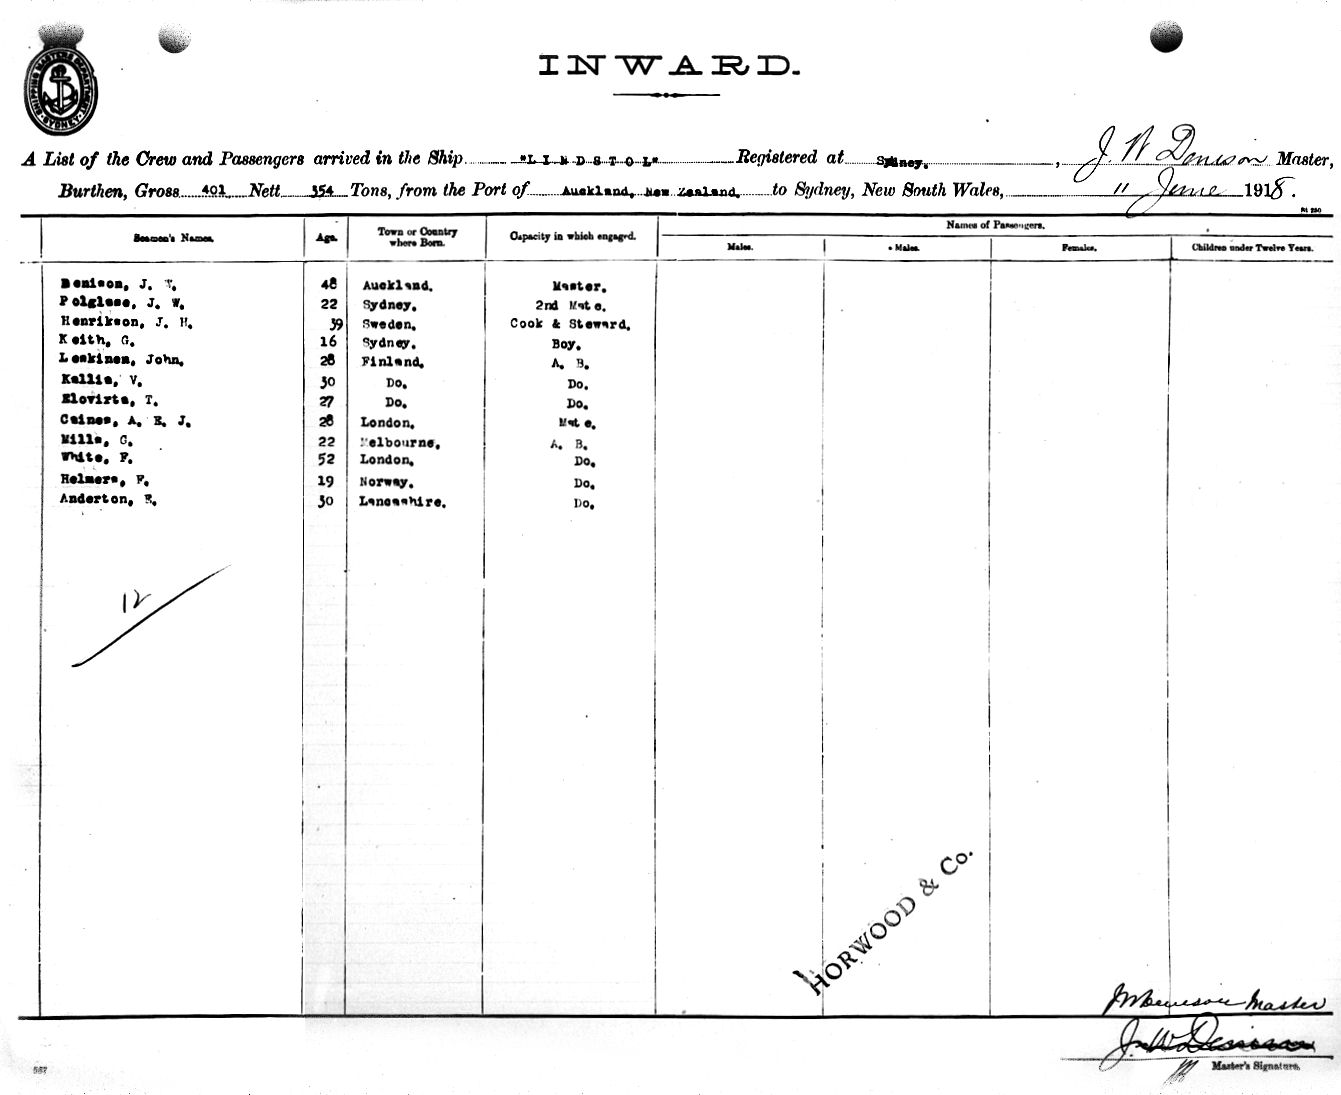 SHIPPING MASTERS DEPARTMENT
SYDNEY
INWARD.
A List of the Crew and Passengers arrived in the Ship "LINDSTOL" Registered at Sydney, J. W Denison Master,
Burthen, Gross 401 Nett 354 Tons, from the Port of Auckland, New Zealand, to Sydney, New South Wales, 11 June 1918.
Seamen's Names. Age. Town or Country where Born. Capacity in which engaged. Names of Passengers.
Males. Males. Females. Children under Twelve Years.
Denison, J. W. 48 Auckland. Master.
Polglase, J. W. 22 Sydney. 2nd Mate.
Henrikson, J. H. 39 Sweden. Cook & Steward.
Keith, G. 16 Sydney. Boy.
Leskinen, John. 28 Finland. A. B.
Kallis, V. 30 Do. Do.
Elovirta, T. 27 Do. Do.
Caines, A. E. J. 28 London. Mate.
Mills, G. 22 Melbourne. A. B.
White, F. 52 London. Do.
Helmers, F. 19 Norway. Do.
Anderton, E. 30 Lancashire. Do.
12
HORWOOD & Co.
J W Denison Master
J. W Denison
Master's Signature.
557